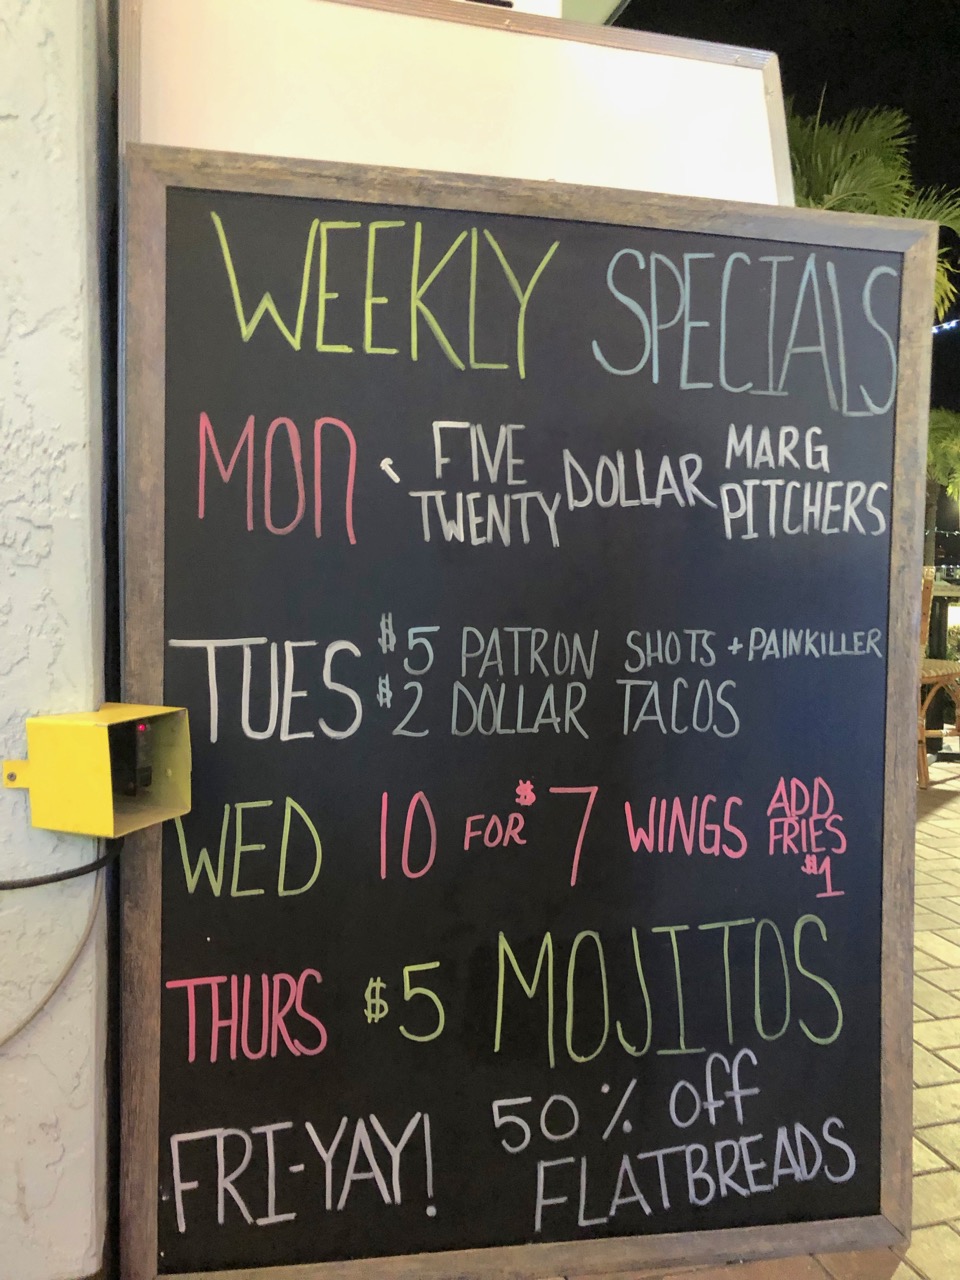 WEEKLY SPECIALS
MON FIVE TWENTY DOLLAR MARG PITCHERS
TUES $5 PATRON SHOTS + PAINKILLER
$2 DOLLAR TACOS
WED 10 FOR $7 WINGS ADD FRIES $1
THURS $5 MOJITOS
FRI-YAY! 50% Off
FLATBREADS